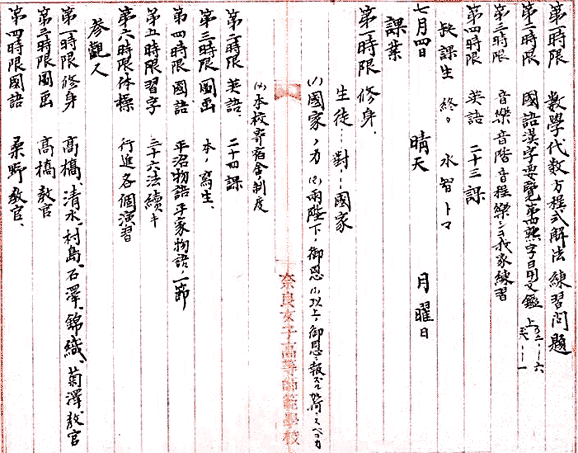 第一時限 数學代数方程式解法練習問題
第二時限 國語漢字要覧
第三時限 音樂音階音程 練習
第四時限 英語 二十三課
放課生 終
七月四日 晴天 月曜日
課業
第一時限 修身、
生徒ニ對シ國家
(1)國家ノ力 (2)両陛下ノ御恩 (3)以上ノ御恩
(4)本校寄宿舎ノ制度
第二時限 英語、二十四課
第三時限 圖画 水ノ寫生、
第四時限 國語 平治物語平家物語ノ一節
第五時限 習字 三十六法續キ
第六時限 体操 行進各個演習
参觀人
第一時限 修身 高橋、清水、村島、石澤、錦織、菊澤教官
第三時限 圖画 高橋教官
第四時限 國語 桑野教官、
奈良女子高等師範學校